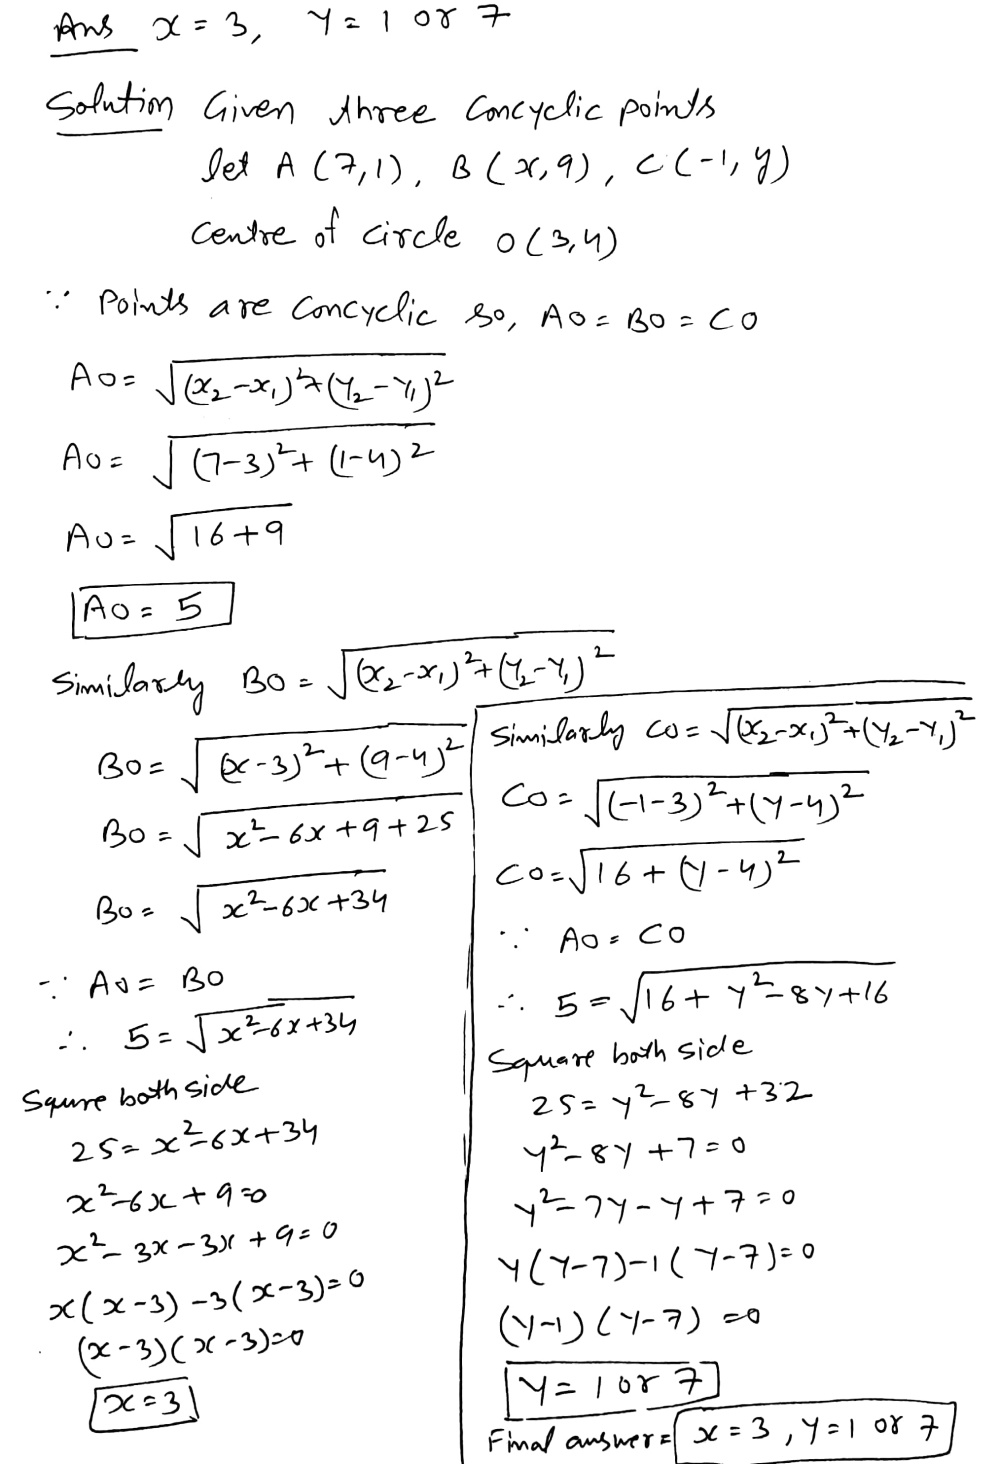 Ans x = 3, y = 1 or 7
Solution Given three Concyclic points
let A (7,1), B (x,9), C (-1, y)
Centre of circle O (3,4)
∵ Points are Concyclic so, AO = BO = CO
AO = √(x₂-x₁)²+(y₂-y₁)²
AO = √(7-3)²+(1-4)²
AO = √16+9
AO = 5
Similarly BO = √(x₂-x₁)²+(y₂-y₁)²
BO = √(x-3)²+(9-4)²
BO = √x²-6x+9+25
BO = √x²-6x+34
∵ AO = BO
∴ 5 = √x²-6x+34
Squre both side
25 = x²-6x+34
x²-6x+9=0
x²-3x-3x+9=0
x(x-3)-3(x-3)=0
(x-3)(x-3)=0
x=3
Similarly CO = √(x₂-x₁)²+(y₂-y₁)²
CO = √(-1-3)²+(y-4)²
CO = √16+(y-4)²
∵ AO = CO
∴ 5 = √16+y²-8y+16
Square both side
25 = y²-8y+32
y²-8y+7=0
y²-7y-y+7=0
y(y-7)-1(y-7)=0
(y-1)(y-7)=0
y = 1 or 7
Final answer = x = 3, y = 1 or 7